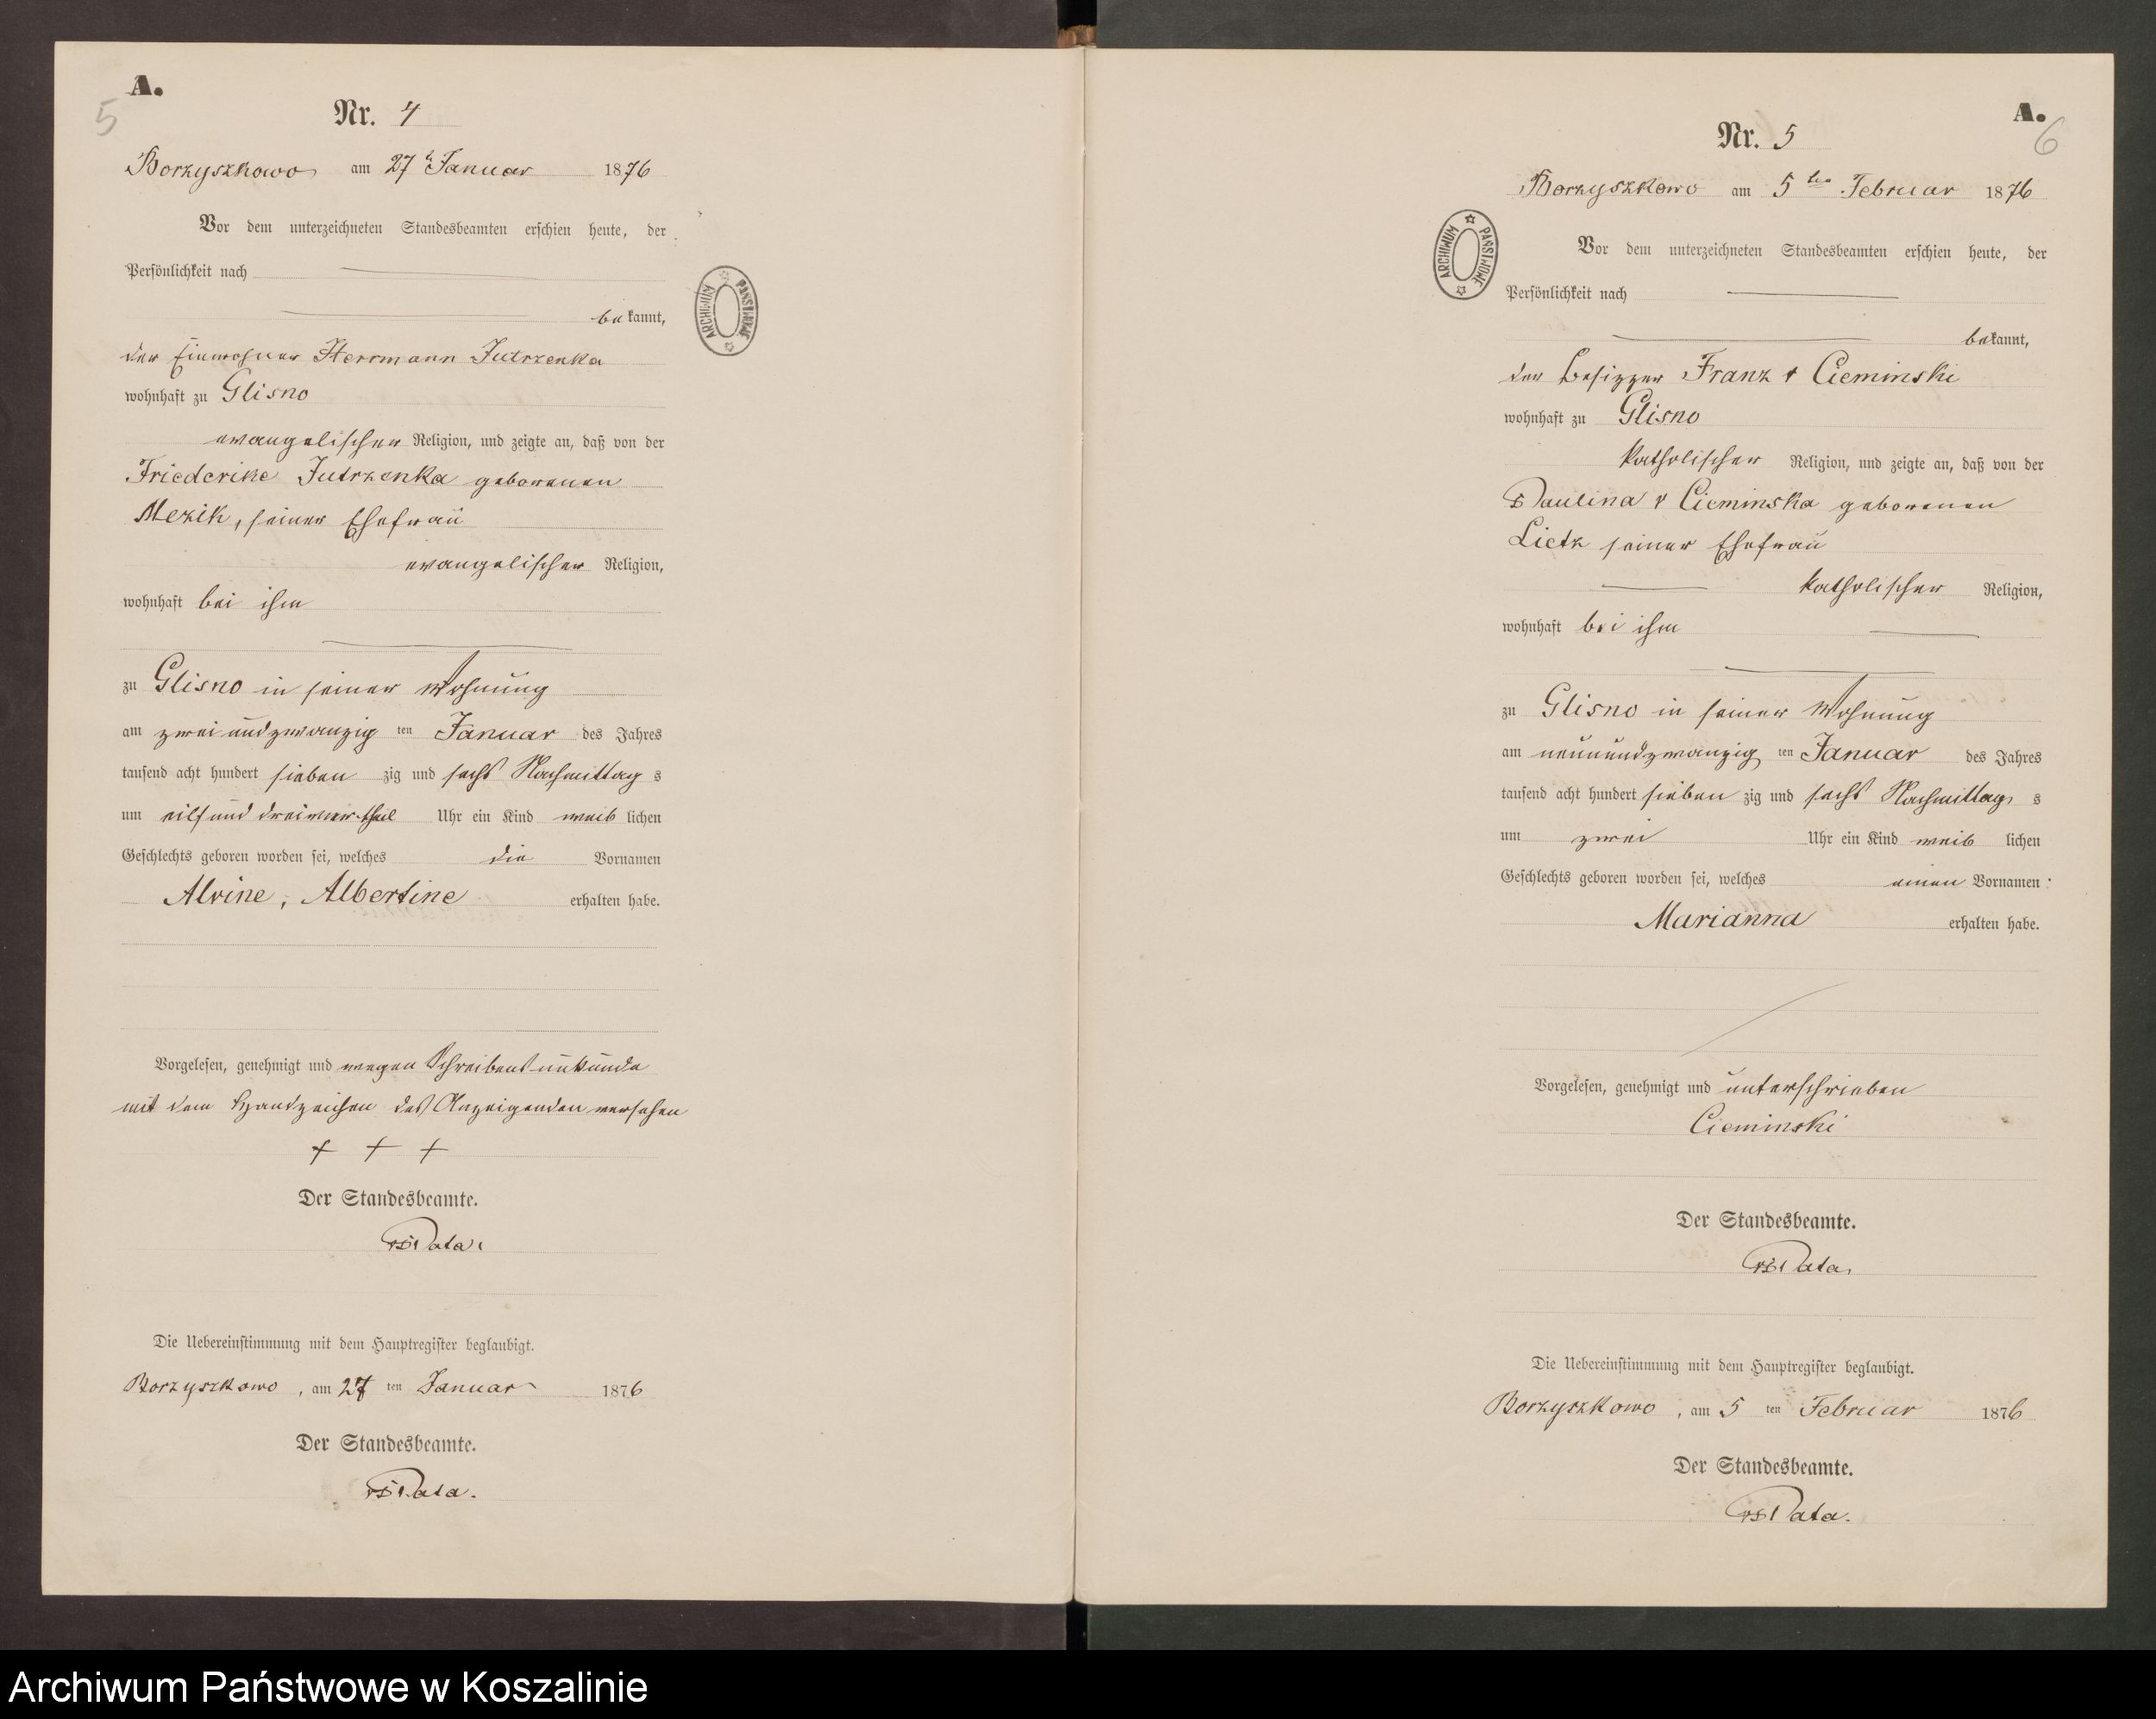 A.
5
Nr. 4
Borzyszkowo am 27t Januar 1876
Vor dem unterzeichneten Standesbeamten erschien heute, der
Persönlichkeit nach
bekannt,
der Einwohner Herrmann Jutrzenka
wohnhaft zu Glisno
evangelischer Religion, und zeigte an, daß von der
Friederike Jutrzenka geborenen
Mezik, seiner Ehefrau
evangelischer Religion,
wohnhaft bei ihm
zu Glisno in seiner Wohnung
am zwei und zwanzig ten Januar des Jahres
tausend acht hundert sieben zig und sechs Nachmittag s
um eilf und dreiviertheil Uhr ein Kind weib lichen
Geschlechts geboren worden sei, welches die Vornamen
Alvine, Albertine erhalten habe.
Vorgelesen, genehmigt und wegen Schreibensunkunde
mit dem Handzeichen des Anzeigenden versehen
+ + +
Der Standesbeamte.
Pata.
Die Uebereinstimmung mit dem Hauptregister beglaubigt.
Borzyszkowo, am 27 ten Januar 1876
Der Standesbeamte.
Pata.
ARCHIWUM PAŃSTWOWE
A.
6
Nr. 5
Borzyszkowo am 5ten Februar 1876
Vor dem unterzeichneten Standesbeamten erschien heute, der
Persönlichkeit nach
bekannt,
der Besitzer Franz v Cieminski
wohnhaft zu Glisno
katholischer Religion, und zeigte an, daß von der
Paulina v Cieminska geborenen
Lietz seiner Ehefrau
katholischer Religion,
wohnhaft bei ihm
zu Glisno in seiner Wohnung
am neunundzwanzig ten Januar des Jahres
tausend acht hundert sieben zig und sechs Nachmittag s
um zwei Uhr ein Kind weib lichen
Geschlechts geboren worden sei, welches einen Vornamen
Marianna erhalten habe.
Vorgelesen, genehmigt und unterschrieben
Cieminski
Der Standesbeamte.
Pata.
Die Uebereinstimmung mit dem Hauptregister beglaubigt.
Borzyszkowo, am 5 ten Februar 1876
Der Standesbeamte.
Pata.
ARCHIWUM PAŃSTWOWE
Archiwum Państwowe w Koszalinie